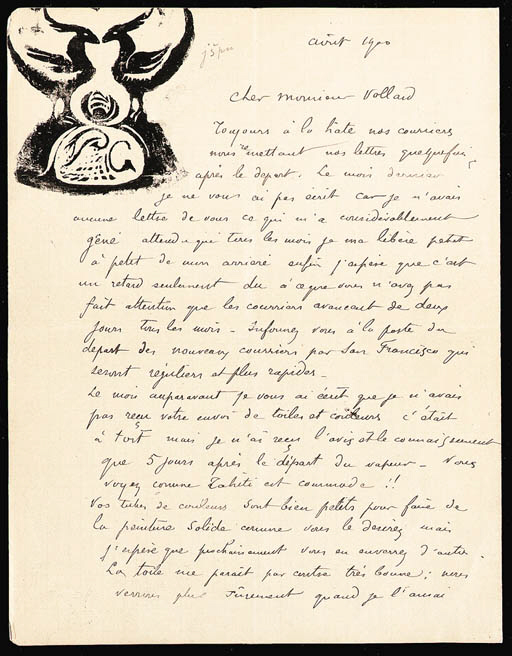 août 1900
Cher Monsieur Vollard
Toujours à la hâte nos courriers
nous remettant nos lettres quelquefois
après le départ. Le mois dernier
je ne vous ai pas écrit car je n'avais
aucune lettre de vous ce qui m'a considérablement
gêné attendu que tous les mois je me libère petit
à petit de mon arriéré enfin j'espère que c'est
un retard seulement du à ce que vous n'avez pas
fait attention que les courriers avancent de deux
jours tous les mois - Informez vous à la poste du
départ des nouveaux courriers par San Francisco qui
seront réguliers et plus rapides -
Le mois auparavant je vous ai écrit que je n'avais
pas reçu votre envoi de toiles et couleurs c'était
à tort mais je n'ai reçu l'avis et le connaissement
que 5 jours après le départ du vapeur - Vous
voyez comme Tahiti est commode !!
Vos tubes de couleurs sont bien petits pour faire de
la peinture solide comme vous le desirez mais
j'espère que prochainement vous en enverrez d'autres
La toile me parait par contre très bonne ; vous
verrez plus sûrement quand je l'aurai
G